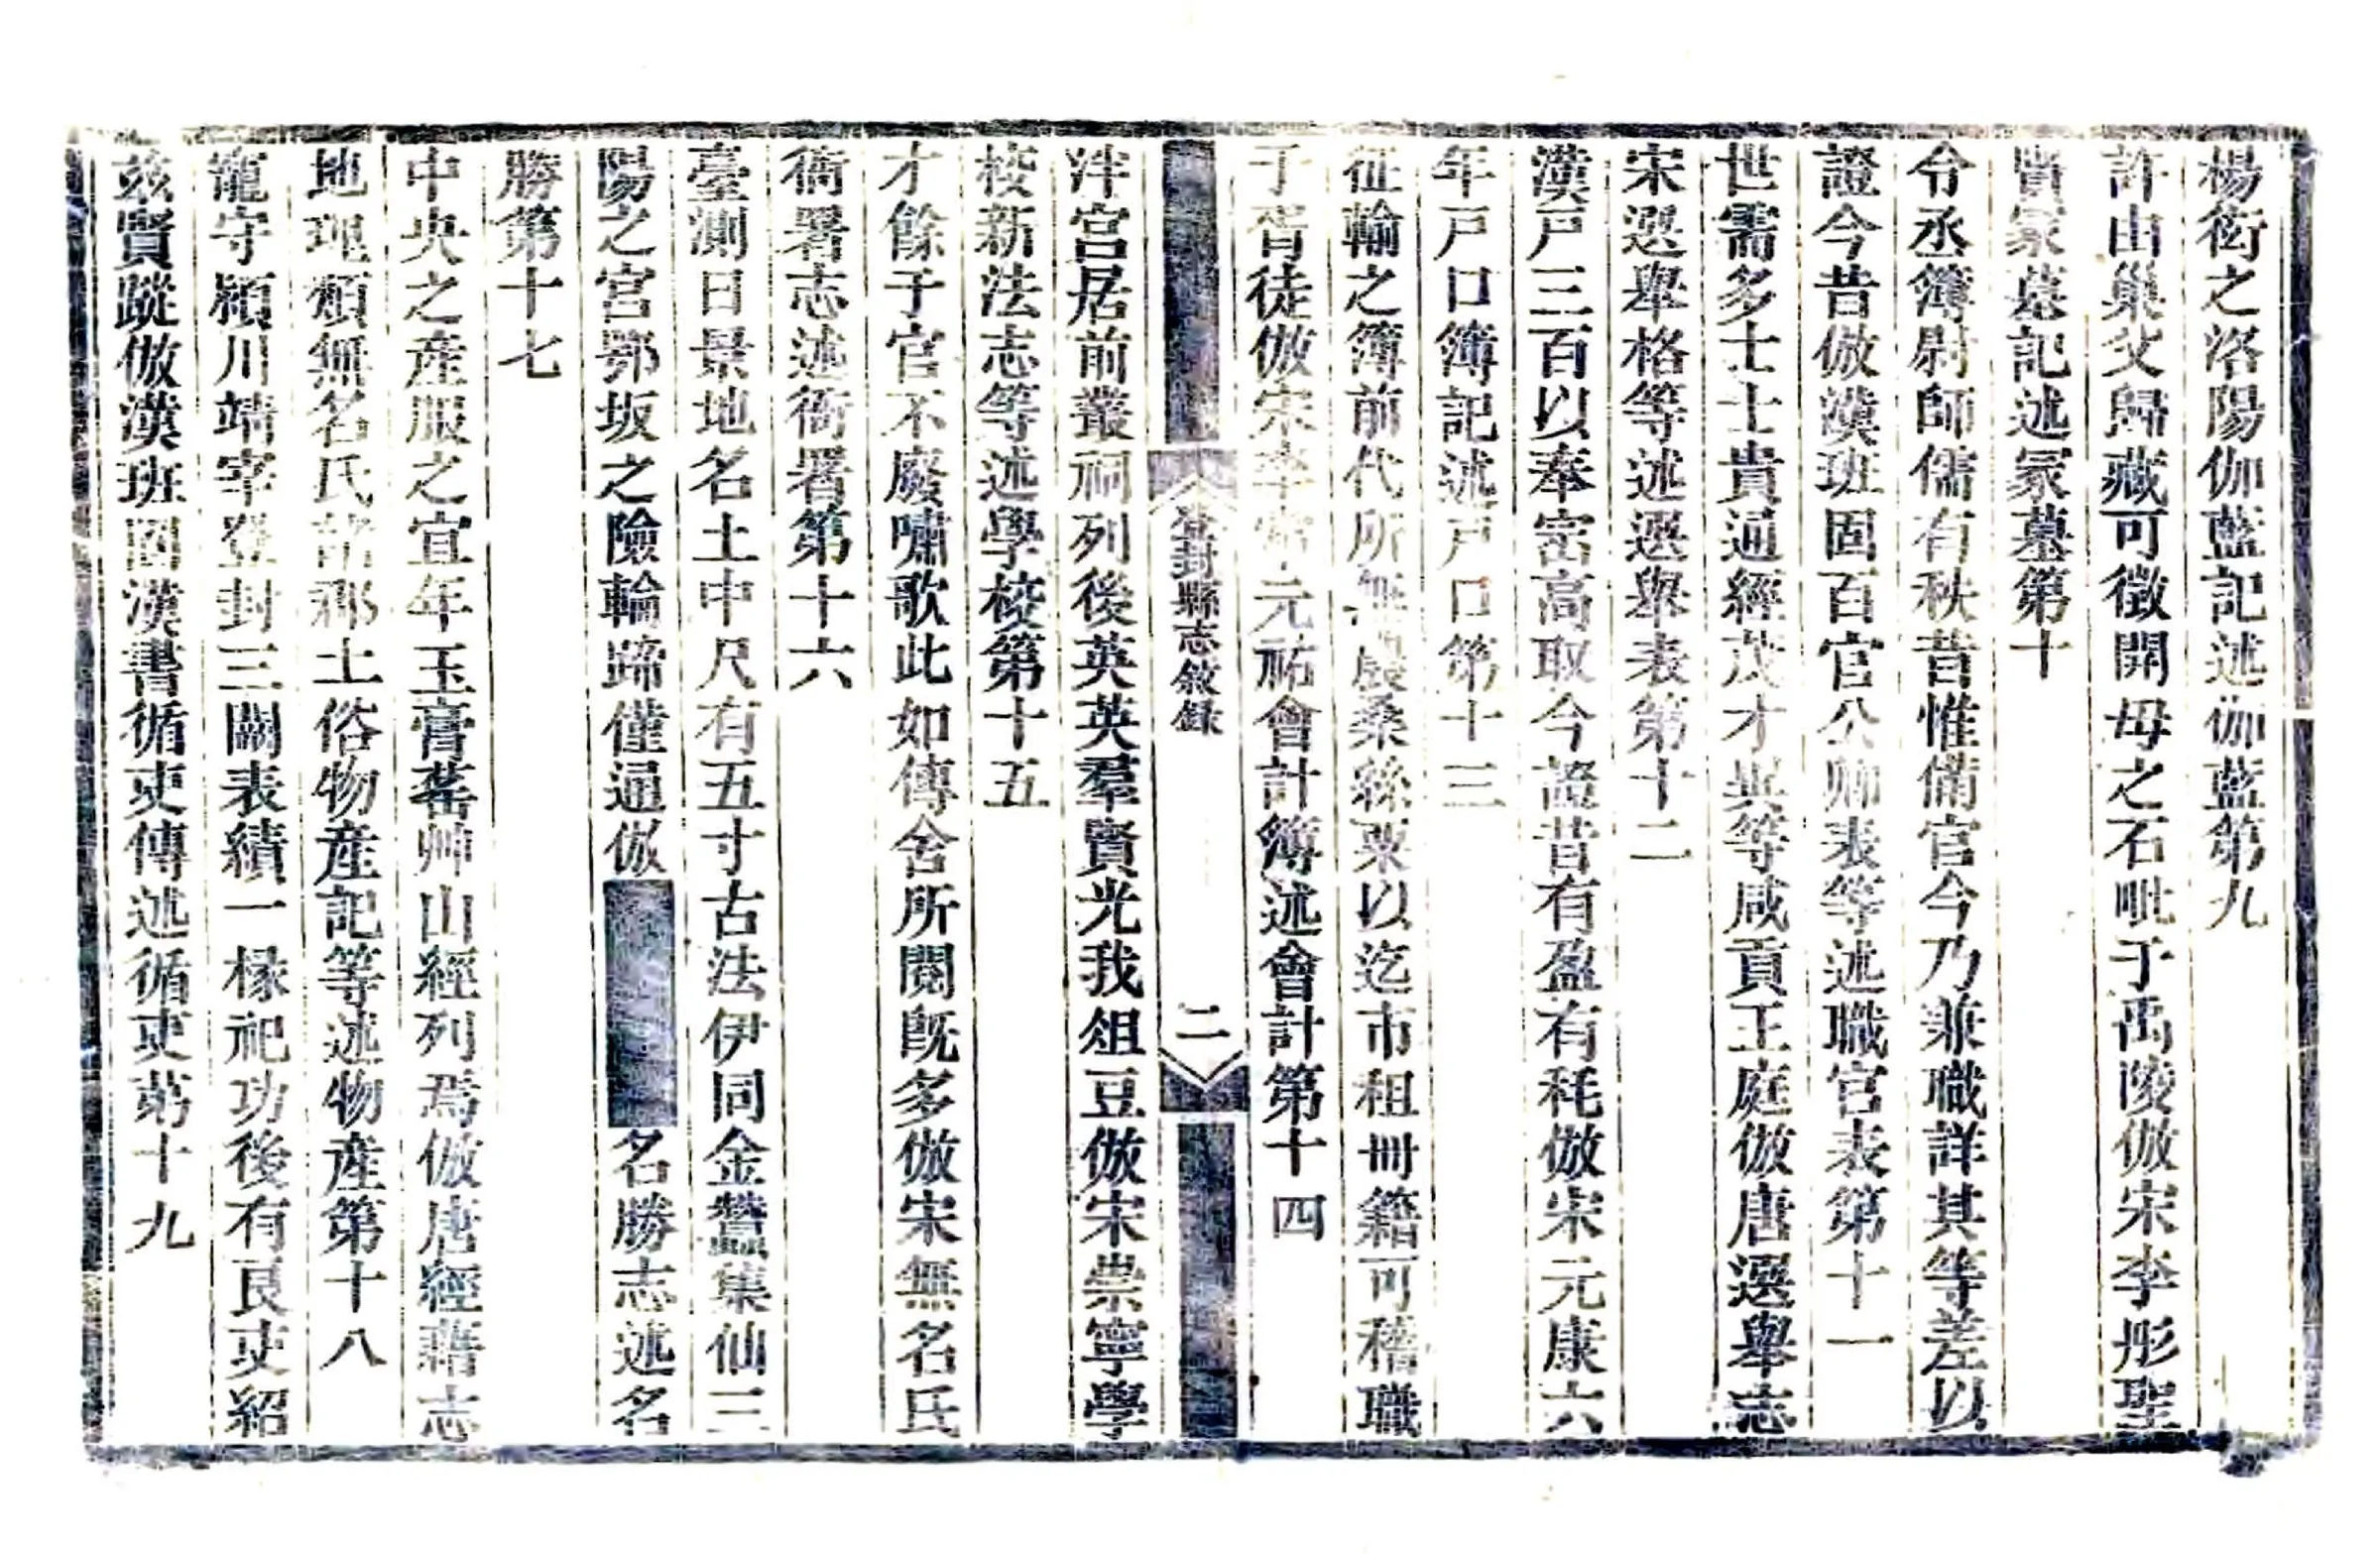 楊衒之洛陽伽藍記述伽藍第九
許由巢父歸藏可徵開母之石毗于禹陵倣宋李彤聖
賢冢墓記述冢墓第十
令丞簿尉師儒有秩昔惟備官今乃兼職詳其等差以
證今昔倣漢班固百官公卿表等述職官表第十一
世需多士士貴通經茂才異等咸貢王庭倣唐選舉志
宋選舉格等述選舉表第十二
漢戸三百以奉崈高取今證昔有盈有秏倣宋元康六
年戸口簿記述戸口第十三
征輸之簿前代所無農桑絲粟以迄市租冊籍可稽職
于胥徒倣宋李常元祐會計簿述會計第十四
登封縣志敘錄
二
泮宮居前叢祠列後英英羣賢光我俎豆倣宋崇寧學
校新法志等述學校第十五
才餘于官不廢嘯歌此如傳舍所閱旣多倣宋無名氏
衙署志述衙署第十六
臺測日景地名土中尺有五寸古法伊同金鷖集仙三
陽之宮鄂坂之險輪蹄僅通倣
名勝志述名
勝第十七
中央之產服之宜年玉膏䔄艸山經列焉倣唐經藉志
地理類無名氏諸郡土俗物產記等述物產第十八
寵守潁川靖宰登封三闕表績一椽祀功後有良吏紹
茲賢蹤倣漢班固漢書循吏傳述循吏第十九